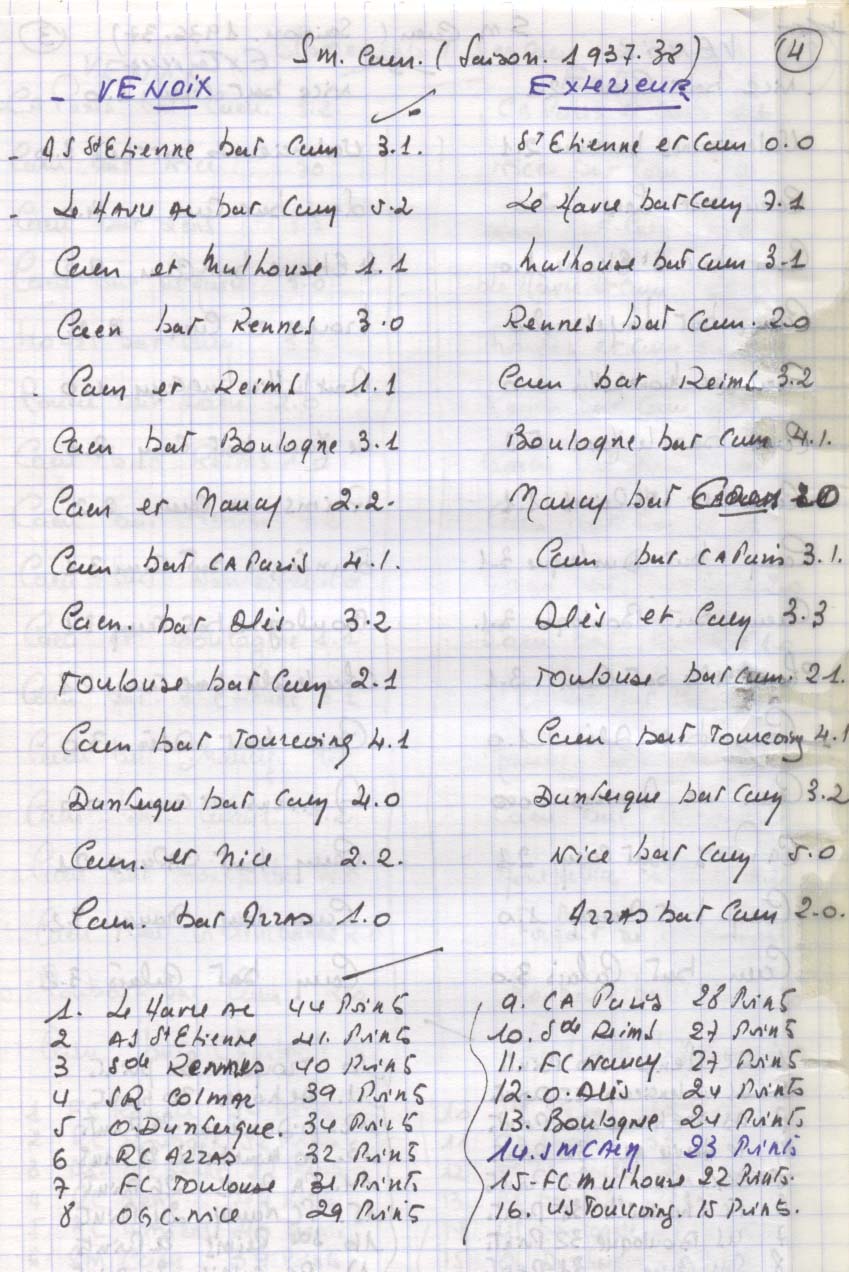 SM. Caen. (Saison. 1937.38)
4
- VENOIX
EXTERIEUR
- AS St Etienne bat Caen 3.1.
St Etienne et Caen 0.0
- Le Havre AC bat Caen 5.2
Le Havre bat Caen 7.1
Caen et Mulhouse 1.1
Mulhouse bat Caen 3-1
Caen bat Rennes 3.0
Rennes bat Caen. 2.0
. Caen et Reims 1.1
Caen bat Reims 3.2
Caen bat Boulogne 3.1
Boulogne bat Caen 4.1.
Caen et Nancy 2.2.
Nancy bat Caen 20
Caen bat CA Paris 4.1.
Caen bat CA Paris 3.1.
Caen. bat Alès 3.2
Alès et Caen 3.3
Toulouse bat Caen 2.1
Toulouse bat Caen. 21.
Caen bat Tourcoing 4.1
Caen bat Tourcoing 4.1
Dunkerque bat Caen 4.0
Dunkerque bat Caen 3.2
Caen. et Nice 2.2.
Nice bat Caen 5.0
Caen. bat ARRAS 1.0
ARRAS bat Caen 2.0.
1. Le Havre AC 44 Points
2 AS St Etienne 41. Points
3 Sde Rennes 40 Points
4 SR Colmar 39. Points
5 O. Dunkerque. 34 Points
6 RC ARRAS 32 Points
7 FC Toulouse 31 Points
8 OGC. Nice 29 Points
9. CA Paris 28 Points
10. Sde Reims 27 Points
11. FC Nancy 27 Points
12. O. Alès 24 Points
13. Boulogne 24 Points
14. SM CAen 23 Points
15 - FC Mulhouse 22 Points.
16. US Tourcoing. 15 Points.